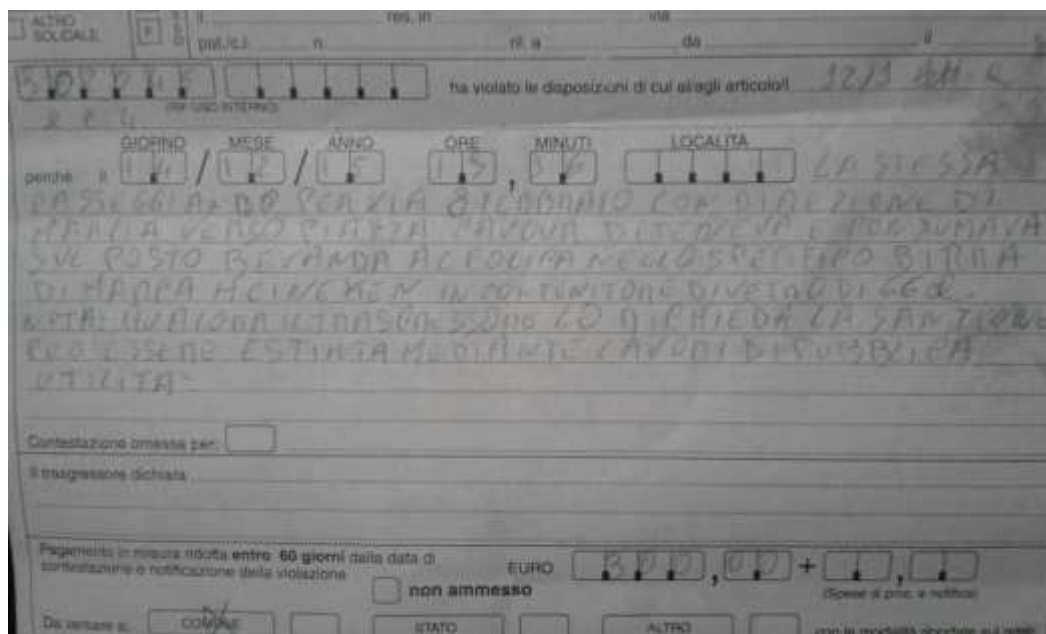 ALTRO il res. in via
SOLIDALE P pat./c.i. n. ril. a da il
ha violato le disposizioni di cui al/agli articolo/i 12/1
(PER USO INTERNO)
GIORNO MESE ANNO ORE MINUTI LOCALITÀ
perché il 14 / 12 / 15 15 , 36 LA STESSA
PASSEGGIANDO PER VIA CON DIREZIONE DI
MARCIA VERSO PIAZZA CAVOUR DETENEVA E CONSUMAVA
SUL POSTO BEVANDA ALCOLICA NELLO SPECIFICO BIRRA
DI MARCA HEINEKEN IN CONTENITORE DI VETRO DI 66 cl.
NOTA: QUALORA IL TRASGRESSORE LO RICHIEDA LA SANZIONE
PUO' ESSERE ESTINTA MEDIANTE LAVORI DI PUBBLICA
UTILITA'
Contestazione omessa per:
Il trasgressore dichiara
Pagamento in misura ridotta entro 60 giorni dalla data di
contestazione o notificazione della violazione EURO 300 , 00 + ,
non ammesso (Spese di proc. e notifica)
Da versare a: COMUNE STATO ALTRO con le modalità riportate sul retro